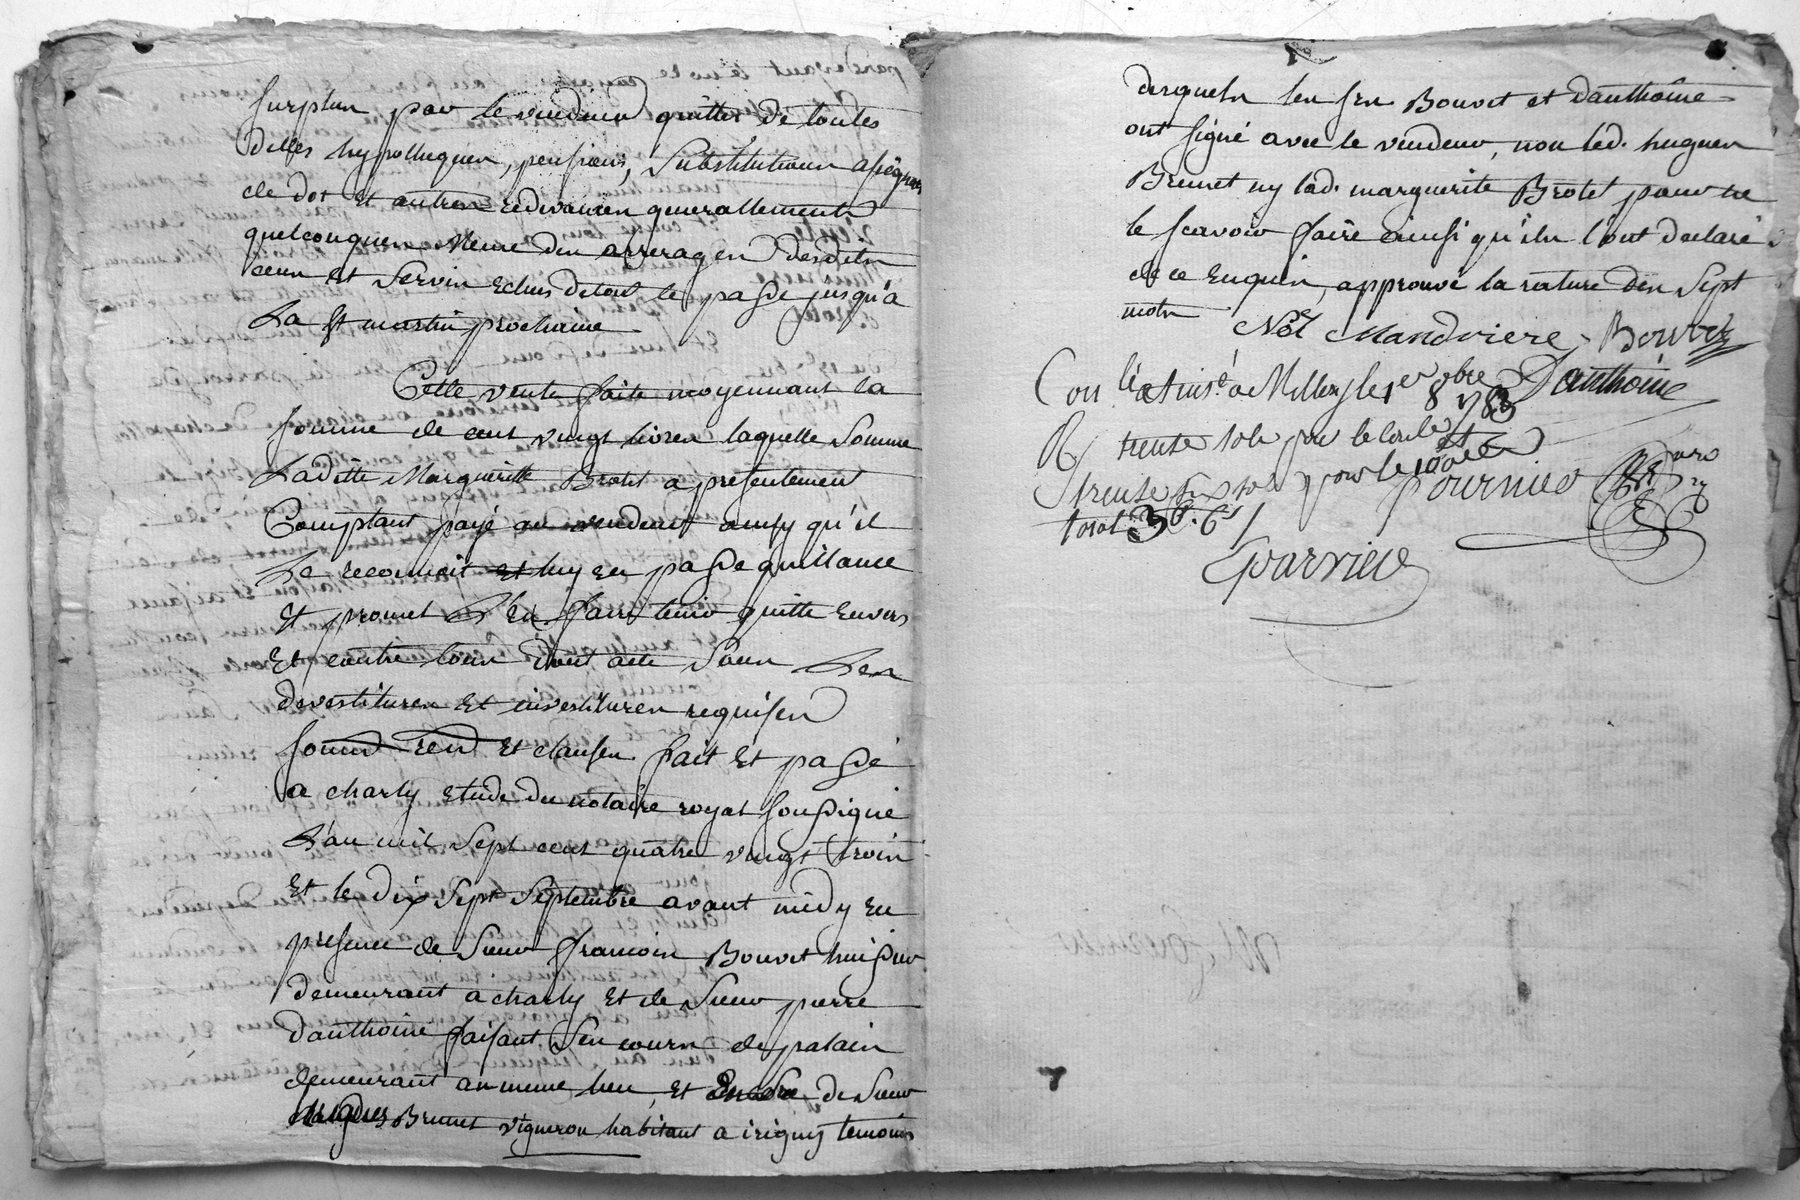 surplus par le vendeur quitter de toutes
dettes hypotheques, pensions, substitutions assignaõn
de dot et autres redevances generallement
quelconques meme des arrerages desdits
cens et servis echus de tout le passé jusqu'a
La St martin prochaine
Cette vente faite moyennant la
somme de cent vingt livres laquelle somme
Laditte Margueritte Brotet a presentement
Comptant payé au vendeur ainsy qu'il
Le reconnoit et luy en passe quittance
Et promet L'en faire tenir quitte envers
Et contre tous dont acte sous Les
devestitures et investitures requises
et clauses fait et passé
a charly etude du notaire royal soussigné
L'an mil sept cent quatre vingt trois
Et le dix sept septembre avant midy en
presence de sieur francois Bouvet huissier
demeurant a charly et de sieur pierre
Danthoine faisant ses cours de palais
demeurant au meme lieu, et encore de sieur
hugues Brunet vigneron habitant a irigny temoins
desquels les srs Bouvet et Danthoine
ont signé avec le vendeur, non led. hugues
Brunet ny lad. marguerite Brotet pour ne
le scavoir faire ainsi qu'ils l'ont declaré
de ce enquis, approuvé la rature des sept
mots
Noël Mandriere Bouvet
Con lé et Insé a Millery le 1er 8bre 1783 Danthoine
R trente sols pour le conlé et
trente six sols pour le
total 3# 6s fournier